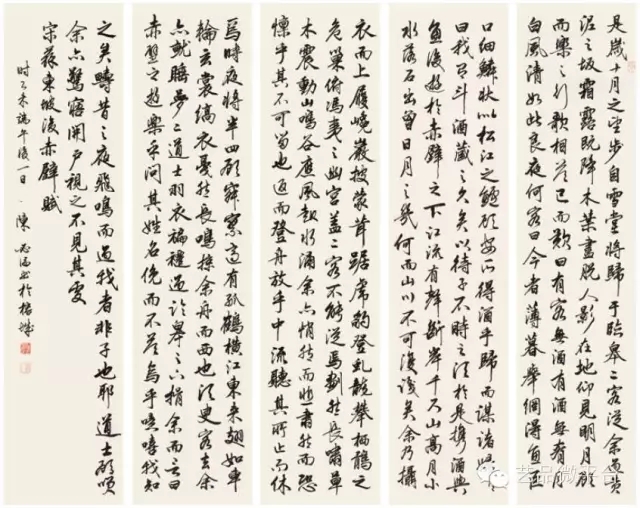 是歲十月之望步自雪堂將歸于臨皋二客從余過黃
泥之坂霜露既降木葉盡脫人影在地仰見明月顧
而樂之行歌相答已而歎曰有客無酒有酒無肴月
白風清如此良夜何客曰今者薄暮舉網得魚巨
口細鱗狀似松江之鱸顧安所得酒乎歸而謀諸婦
曰我有斗酒藏之久矣以待子不時之須於是攜酒與
魚復遊於赤壁之下江流有聲斷岸千尺山高月小
水落石出曾日月之幾何而山川不可復識矣余乃攝
衣而上履巉巖披蒙茸踞虎豹登虬龍攀栖鶻之
危巢俯馮夷之幽宮蓋二客不能從焉劃然長嘯草
木震動山鳴谷應風起水涌余亦悄然而悲肅然而恐
懍乎其不可留也返而登舟放乎中流聽其所止而休
焉時夜將半四顧寂寥適有孤鶴橫江東來翅如車
輪玄裳縞衣戛然長鳴掠余舟而西也須臾客去余
亦就睡夢二道士羽衣蹁躚過臨皋之下揖余而言曰
赤壁之遊樂乎問其姓名俛而不答嗚乎噫嘻我知
之矣疇昔之夜飛鳴而過我者非子也耶道士顧笑
余亦驚寤開戶視之不見其處
宋蘇東坡後赤壁賦
時乙未端午後一日 陳 於榕城
艺品微平台